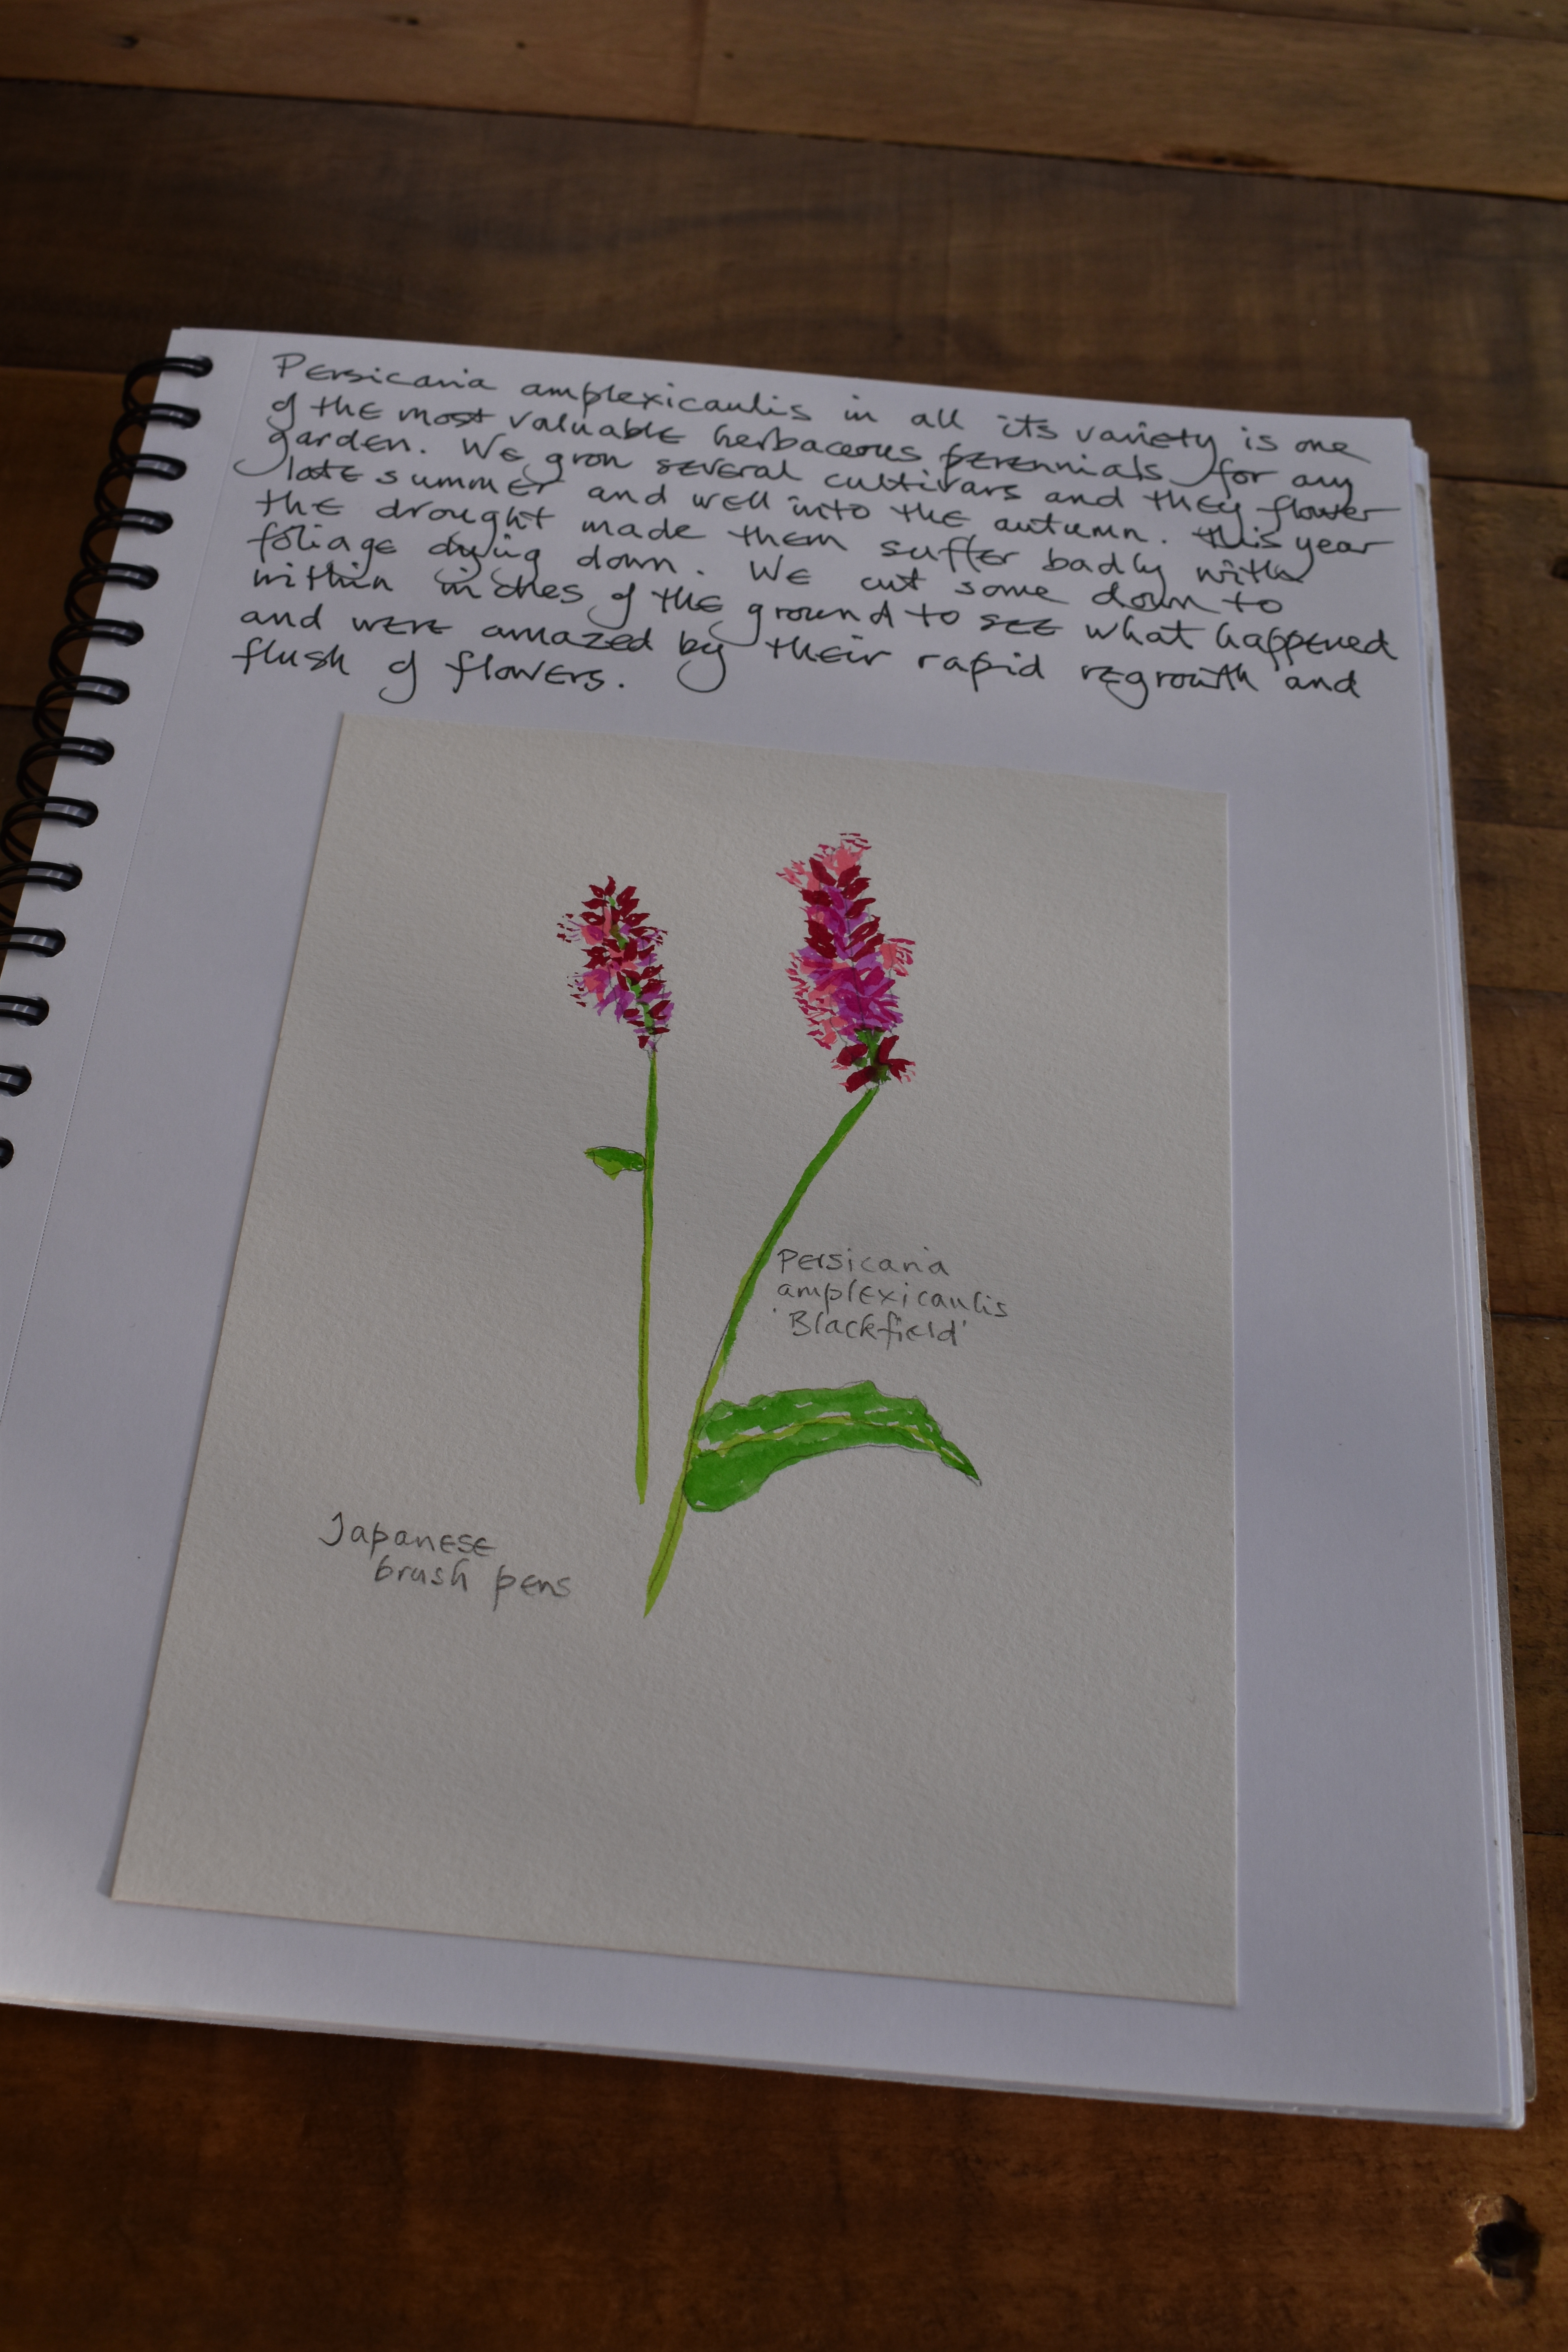 Persicaria amplexicaulis in all its variety is one
of the most valuable herbaceous perennials for any
garden. We grow several cultivars and they flower
late summer and well into the autumn. This year
the drought made them suffer badly with
foliage dying down. We cut some down to
within inches of the ground to see what happened
and were amazed by their rapid regrowth and
flush of flowers.
Persicaria
amplexicaulis
'Blackfield'
Japanese
brush pens